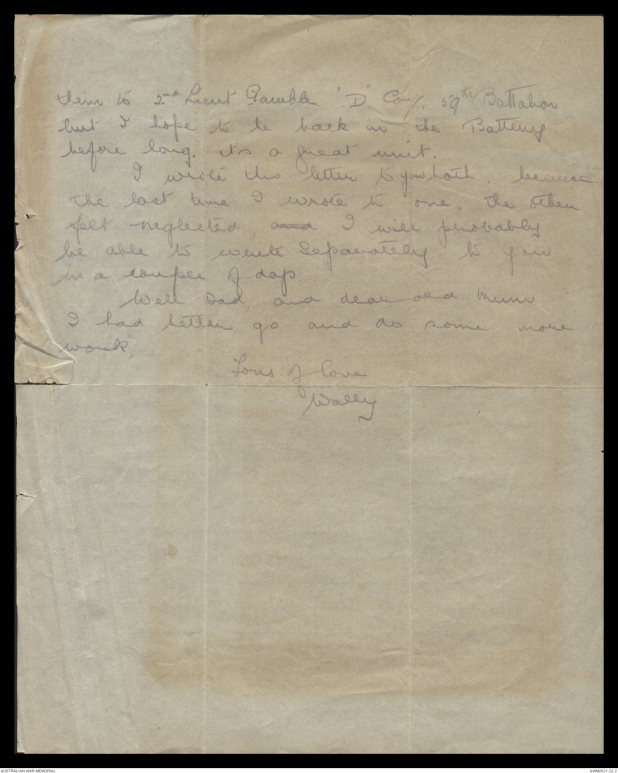 them to 2nd Lieut Gamble "D" Coy. 59th Battalion
but I hope to be back in the Battery
before long. its a great unit.
I write this letter to you both, because
the last time I wrote to one, the other
felt neglected, and I will probably
be able to write Separately to you
in a couple of days
Well Dad, and dear old Mum
I had better go, and do some more
work,
Tons of love
Wally
AUSTRALIAN WAR MEMORIAL